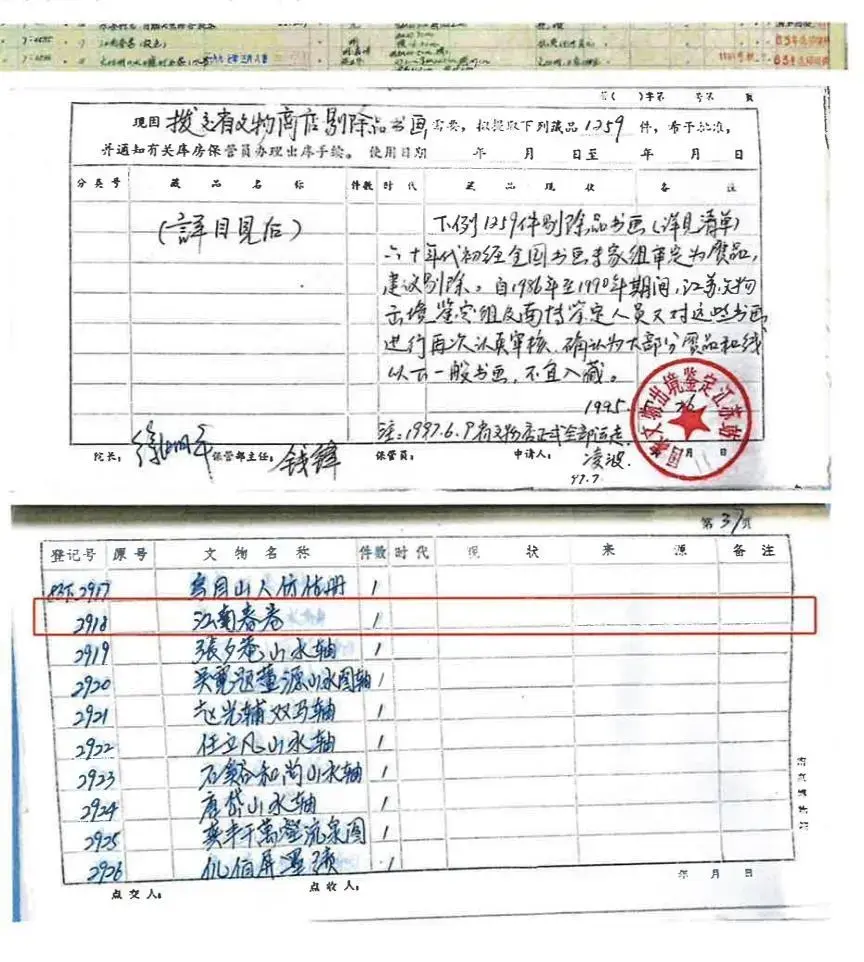 7:4495 1 江南春卷(设色)
63年
省( )字第 号第 页
现因拨交省文物商店剔除品书画需要,拟提取下列藏品1259件,希予批准,
并通知有关库房保管员办理出库手续。 使用日期 年 月 日至 年 月 日
分类号 藏品名称 件数 时代 藏品现状 备注
(詳目見后)
下例1259件剔除品书画(详见清单)
六十年代初经全国书画专家组审定为赝品,
建议剔除。自1986年至1990年期间,江苏文物
出境鉴定组及南博鉴定人员又对这些书画
进行再次认真审核,确认为大部分赝品和线
以下一般书画,不宜入藏。
1995. 26
注:1997.6.9省文物店正式全部运走
国家文物出境鉴定江苏站
年 月 日
院长: 徐湖平 保管部主任: 钱锋 保管员: 申请人: 凌波.
97.7.
第37页
登记号 原号 文物名称 件数 时代 现状 来源 备注
2917 烏目山人仿佶册 1
2918 江南春卷 1
2919 張夕菴山水轴 1
2920 吴寬题董源山水图轴 1
2921 赵光辅双马轴 1
2922 任立凡山水轴 1
2923 石谿和尚山水轴 1
2924 唐岱山水轴 1
2925 龚半千萬壑流泉图 1
2926 仇佰屏墨蹟 1
年 月 日
点交人: 点收人: